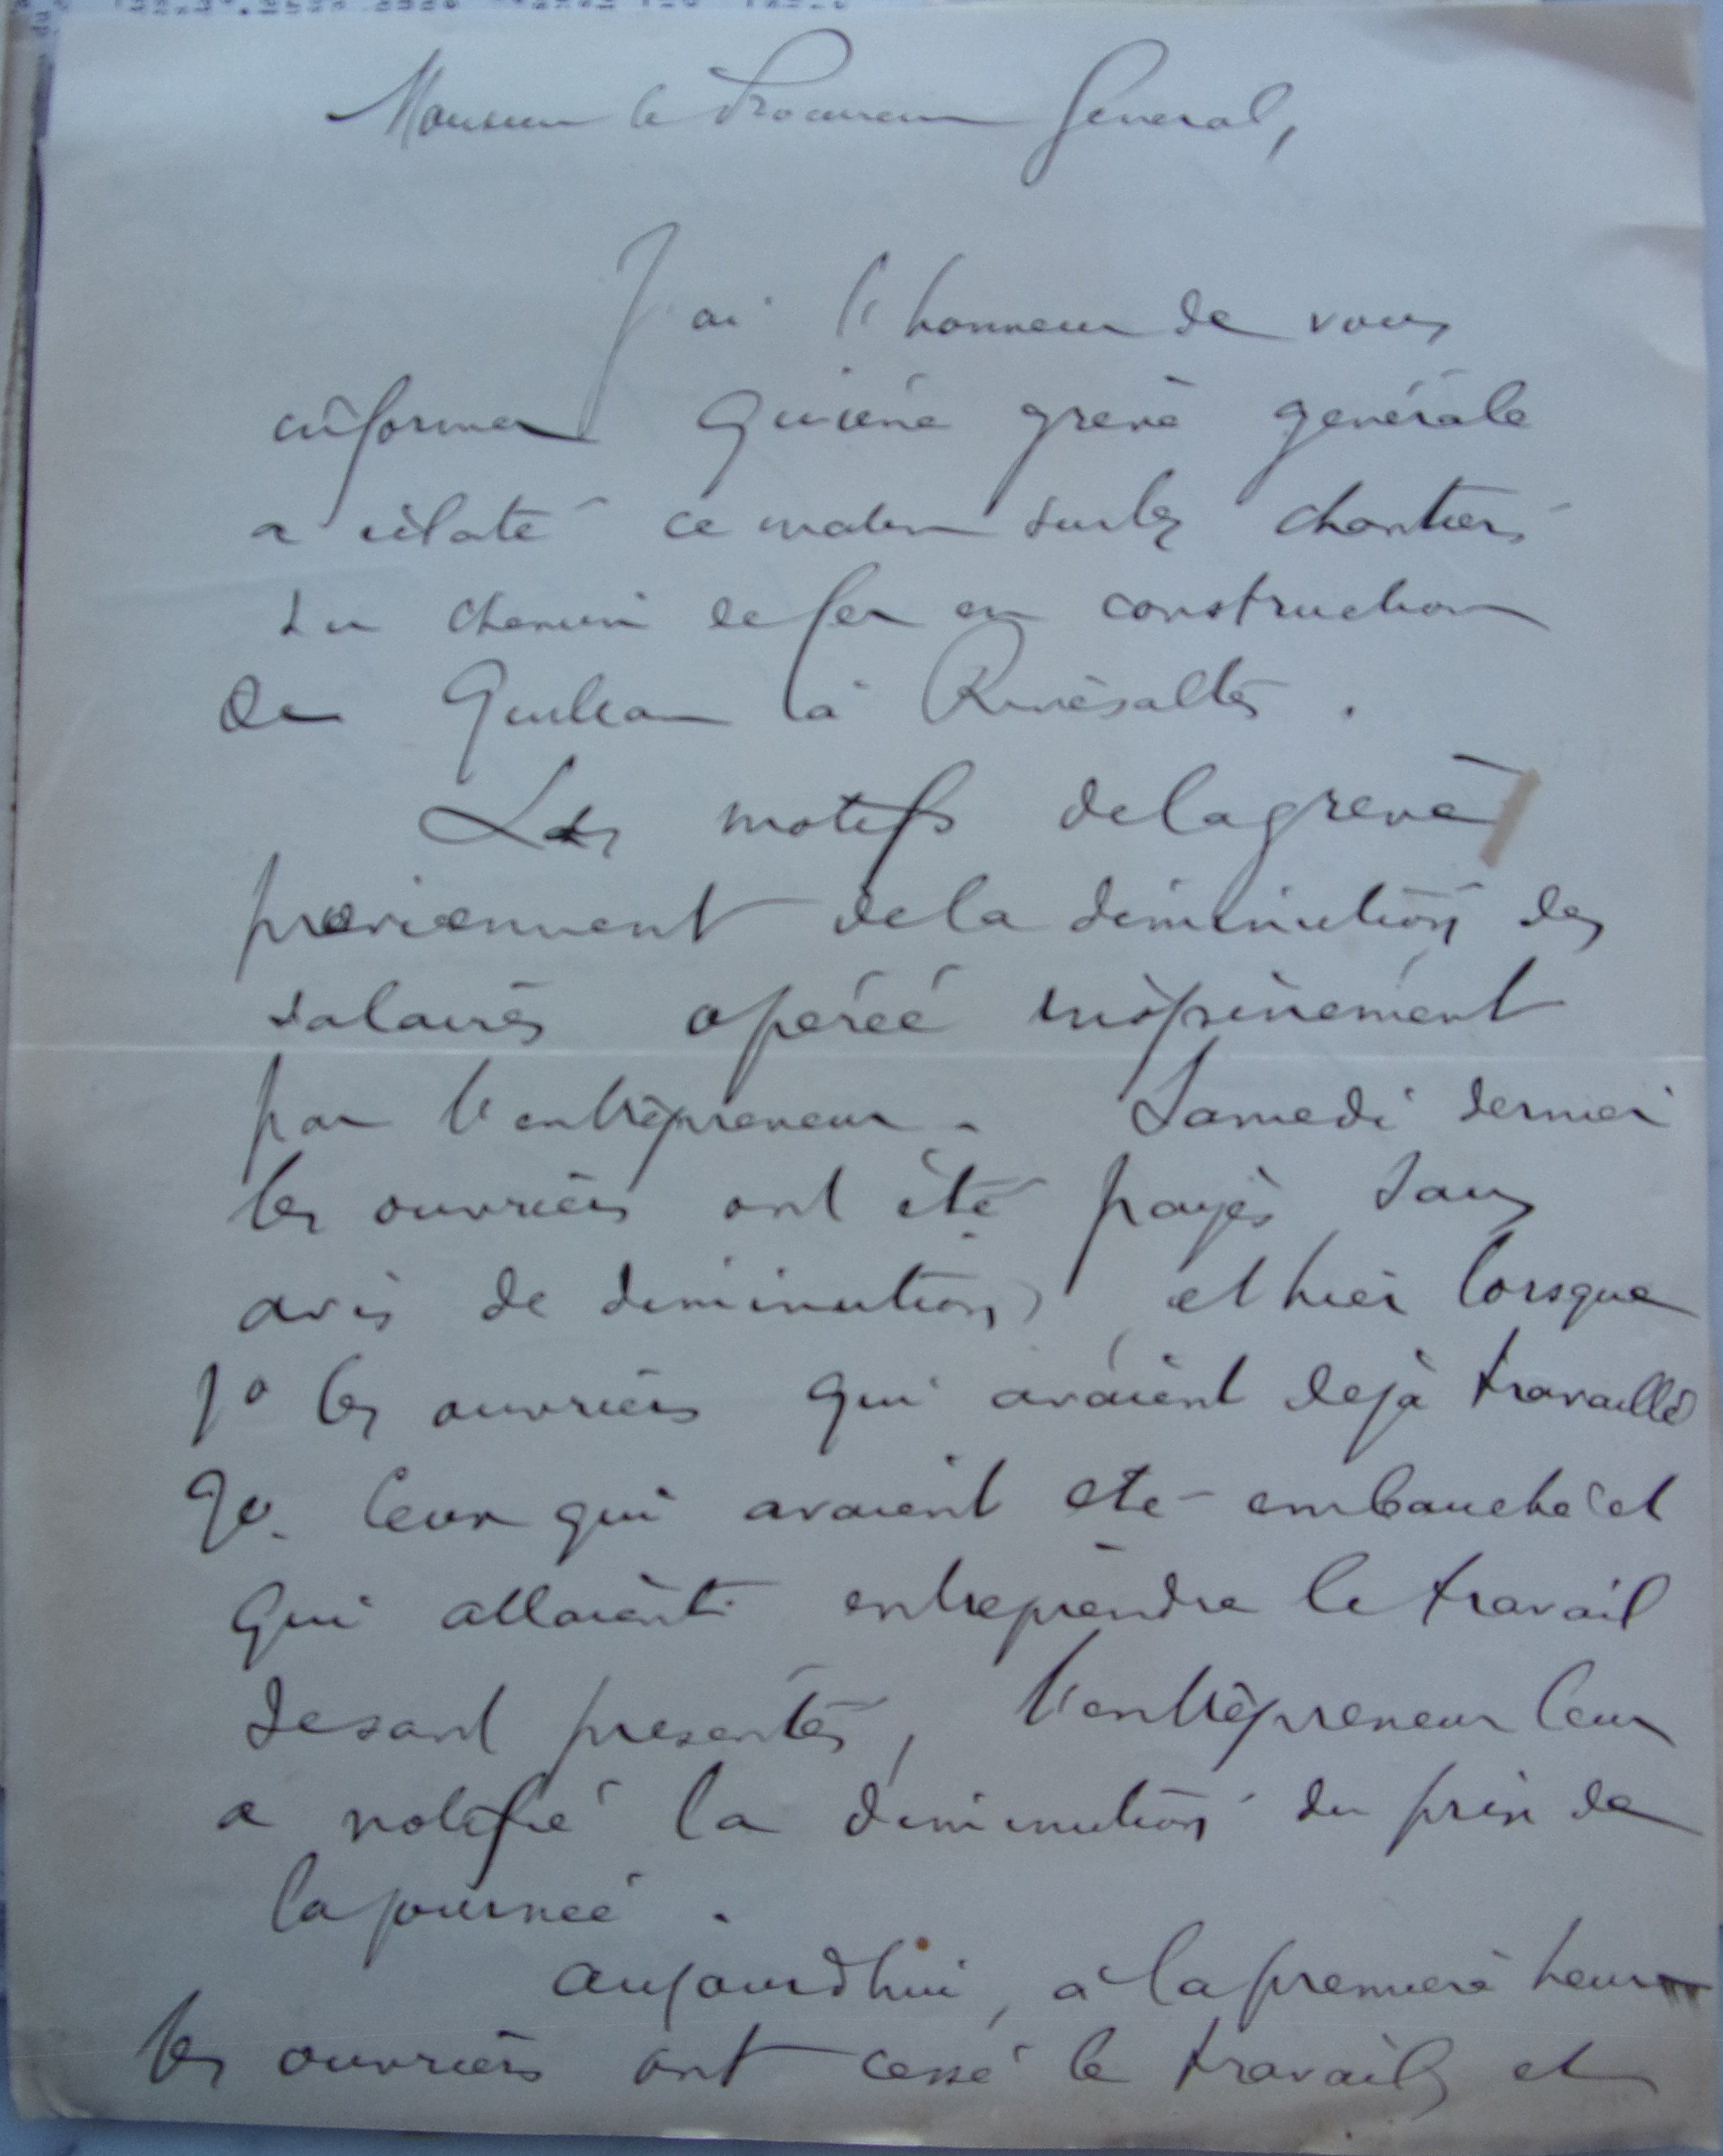 Monsieur le Procureur Général,
J'ai l'honneur de vous
informer qu'une grève générale
a éclaté ce matin sur les chantiers
du chemin de fer en construction
de Quillan à Rivesaltes.
Les motifs de la grève
proviennent de la diminution des
salaires opérée inopinément
par l'entrepreneur. Samedi dernier
les ouvriers ont été payés sans
avis de diminution, et hier lorsque
1o les ouvriers qui avaient déjà travaillé
2o. Ceux qui avaient été embauché et
qui allaient entreprendre le travail
se sont présentés, l'entrepreneur leur
a notifié la diminution du prix de
la journée.
Aujourd'hui, à la première heure
les ouvriers ont cessé le travail, et